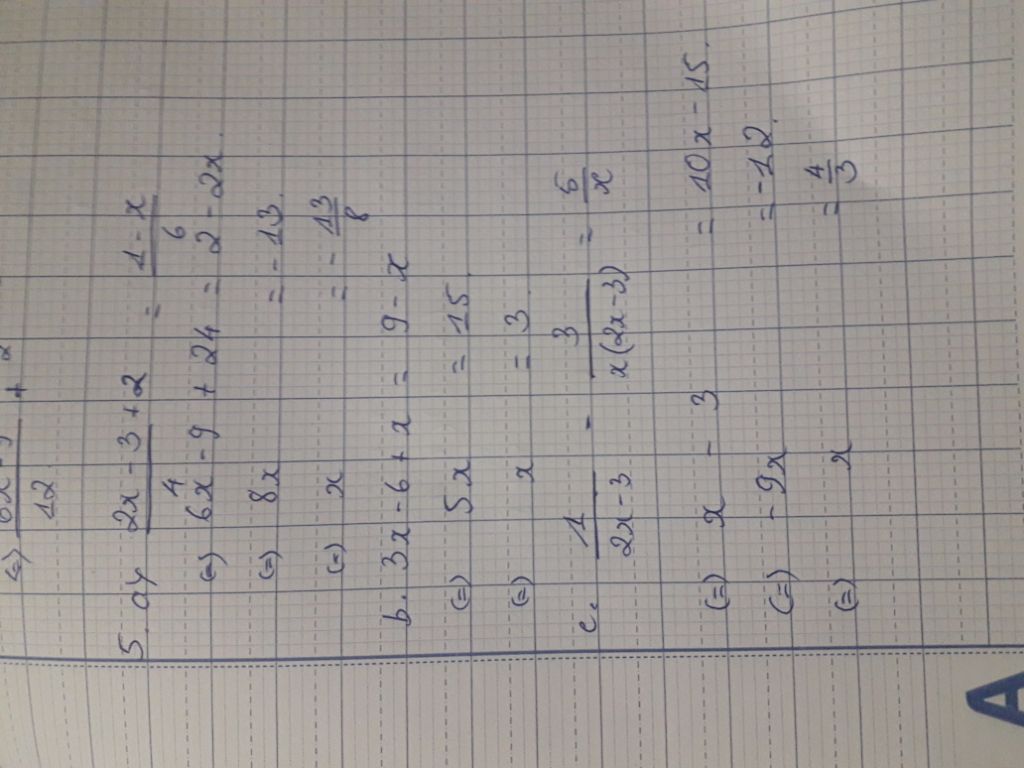 (=) 6x - 9 / 12 + 2
5. a, (2x - 3)/4 + 2 = (1 - x)/6
(=) 6x - 9 + 24 = 2 - 2x
(=) 8x = - 13
(=) x = - 13/8
b. 3x - 6 + x = 9 - x
(=) 5x = 15
(=) x = 3
c. 1/(2x - 3) - 3/(x(2x - 3)) = 5/x
(=) x - 3 = 10x - 15.
(=) - 9x = - 12.
(=) x = 4/3
A